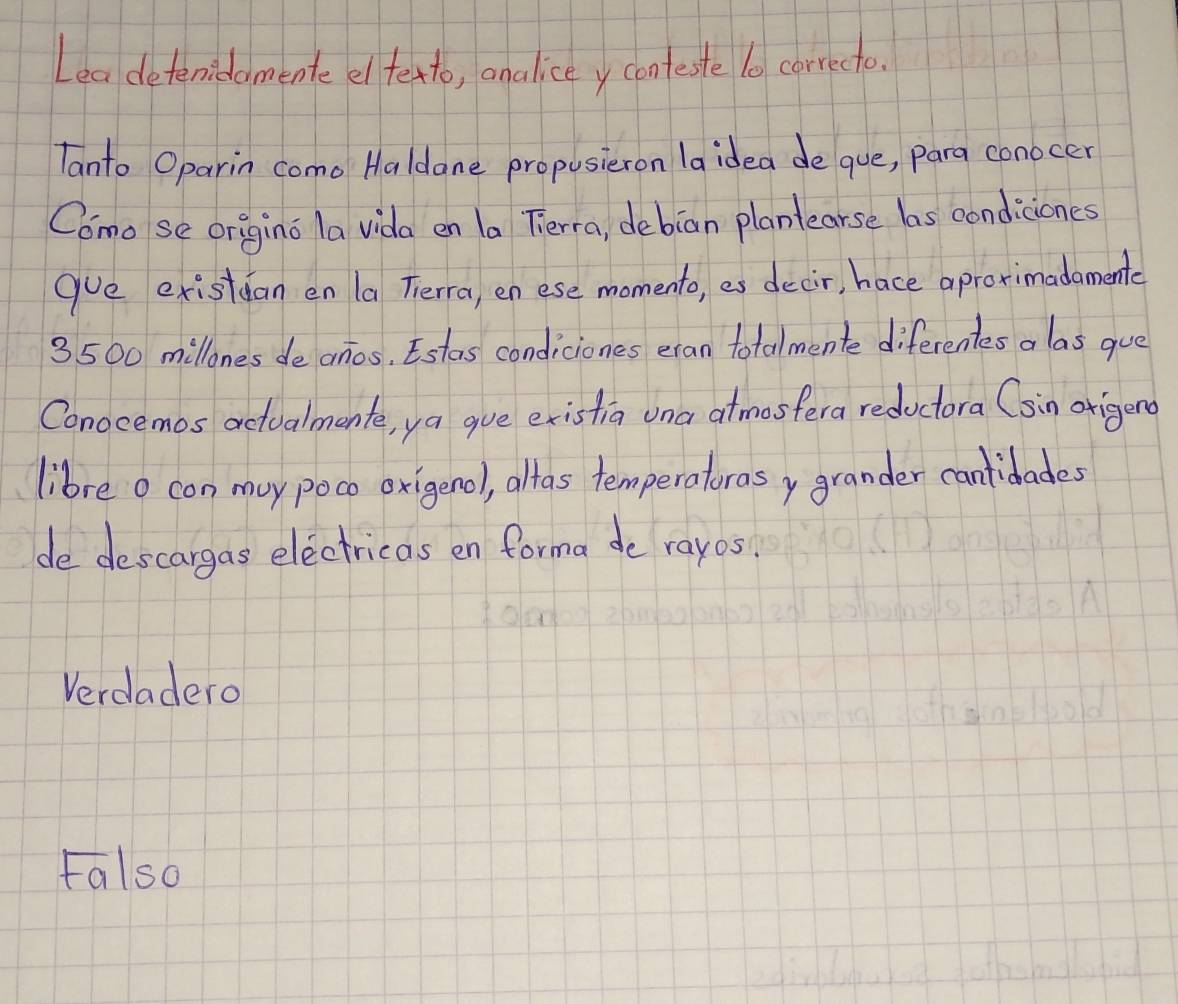 Lea detenidamente el texto, analice y conteste lo correcto.
Tanto Oparin como Haldane propusieron la idea de que, para conocer
Cómo se originó la vida en la Tierra, debían plantearse las condiciones
que existían en la Tierra, en ese momento, es decir, hace aproximadamente
3500 millones de años. Estas condiciones eran totalmente diferentes a las que
Conocemos actualmente, ya que existía una atmosfera reductora (sin oxigeno
libre o con muy poco oxígeno), altas temperaturas y grander cantidades
de descargas eléctricas en forma de rayos.
Verdadero
Falso